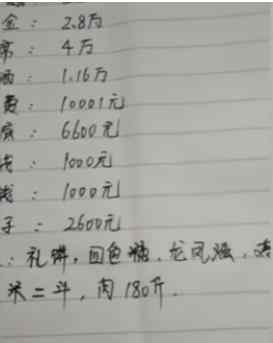 金：2.8万
席：4万
酒：1.16万
费：10001元
：6600元
：1000元
：1000元
子：2600元
：礼饼，回色糖，龙凤强，
米二斗，肉180斤．